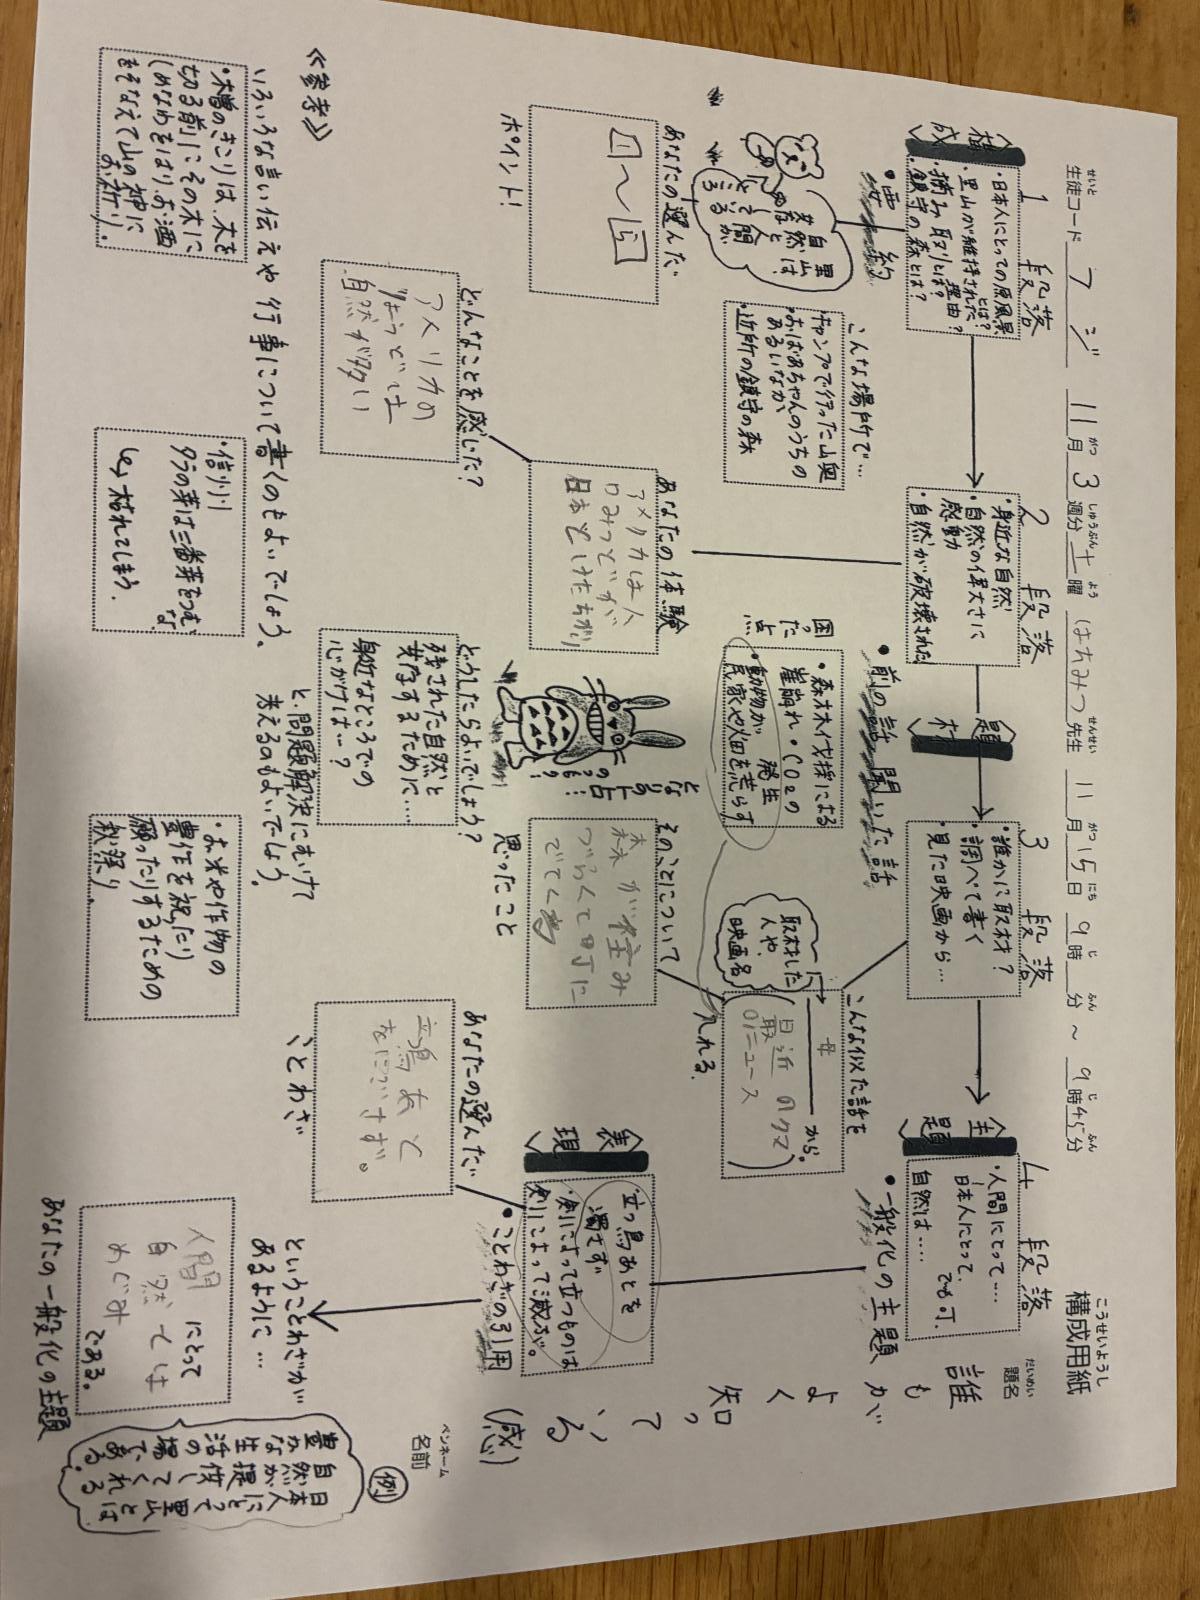 こうせいようし
構成用紙
だいめい
題名
誰もがよく知っている(感)
ペンネーム
名前
せいと
生徒コード フジ 11月3週分 土曜 はちみつ先生 11月15日 9時 分 ~ 9時45分
がつ しゅうぶん よう せんせい がつ にち じ ふん じ ふん
構成
1段落
・日本人にとっての原風景とは?
・里山が維持された理由?
・摘み取りとは?
鎮守の森とは?
・要約
里山は、自然と共に人間がくらしているところ
あなたの選んだ
1~5
ポイント!
2段落
・身近な自然
・自然の偉大さに感動
・自然が破壊された
こんな場所で…
キャンプで行った山奥
おばあちゃんのうちのあるいなか、
・近所の鎮守の森
あなたの体験
アメリカは人口みつどが日本としたちがり
どんなことを感じた?
アメリカのりょうどは自然が多い
題材
3段落
・誰かに取材?
・調べて書く
・見た映画から…
・前の話 聞いた話
困った点
・森林伐採による崖崩れ・CO2の発生
・動物が民家や畑を荒らす
入れる.
取材した人や、映画名
こんな似た話を
母から。
最近のクマのニュース
そのことについて
森が住みづらくて町にでてくる
思ったこと
どうしたらよいでしょう?
残された自然と共存するために…
身近なところでの心がけは…?
と、問題解決にむけて考えるのもよいでしょう。
主題
4段落
・人間にとって…
日本人にとって、でも可.
自然は……
・一般化の主題
表現
・立つ鳥あとを濁さず
・剣によって立つものは剣によって滅ぶ。
・ことわざの引用
あなたの選んだ
立鳥あとをにごさず。
ことわざ
ということわざがあるように…
人間にとって自然とはめぐみである。
あなたの一般化の主題
例
日本人にとって里山とは自然が提供してくれる豊かな生活の場である。
≪参考≫
いろいろな言い伝えや行事について書くのもよいでしょう。
・木曽のきこりは、木を切る前にその木にしめなわをはり、お酒をそなえて山の神にお祈り.
・信州
タラの芽は三番芽をつむなしょう枯れてしまう.
・お米や作物の豊作を祝ったり願ったりするための秋祭り.